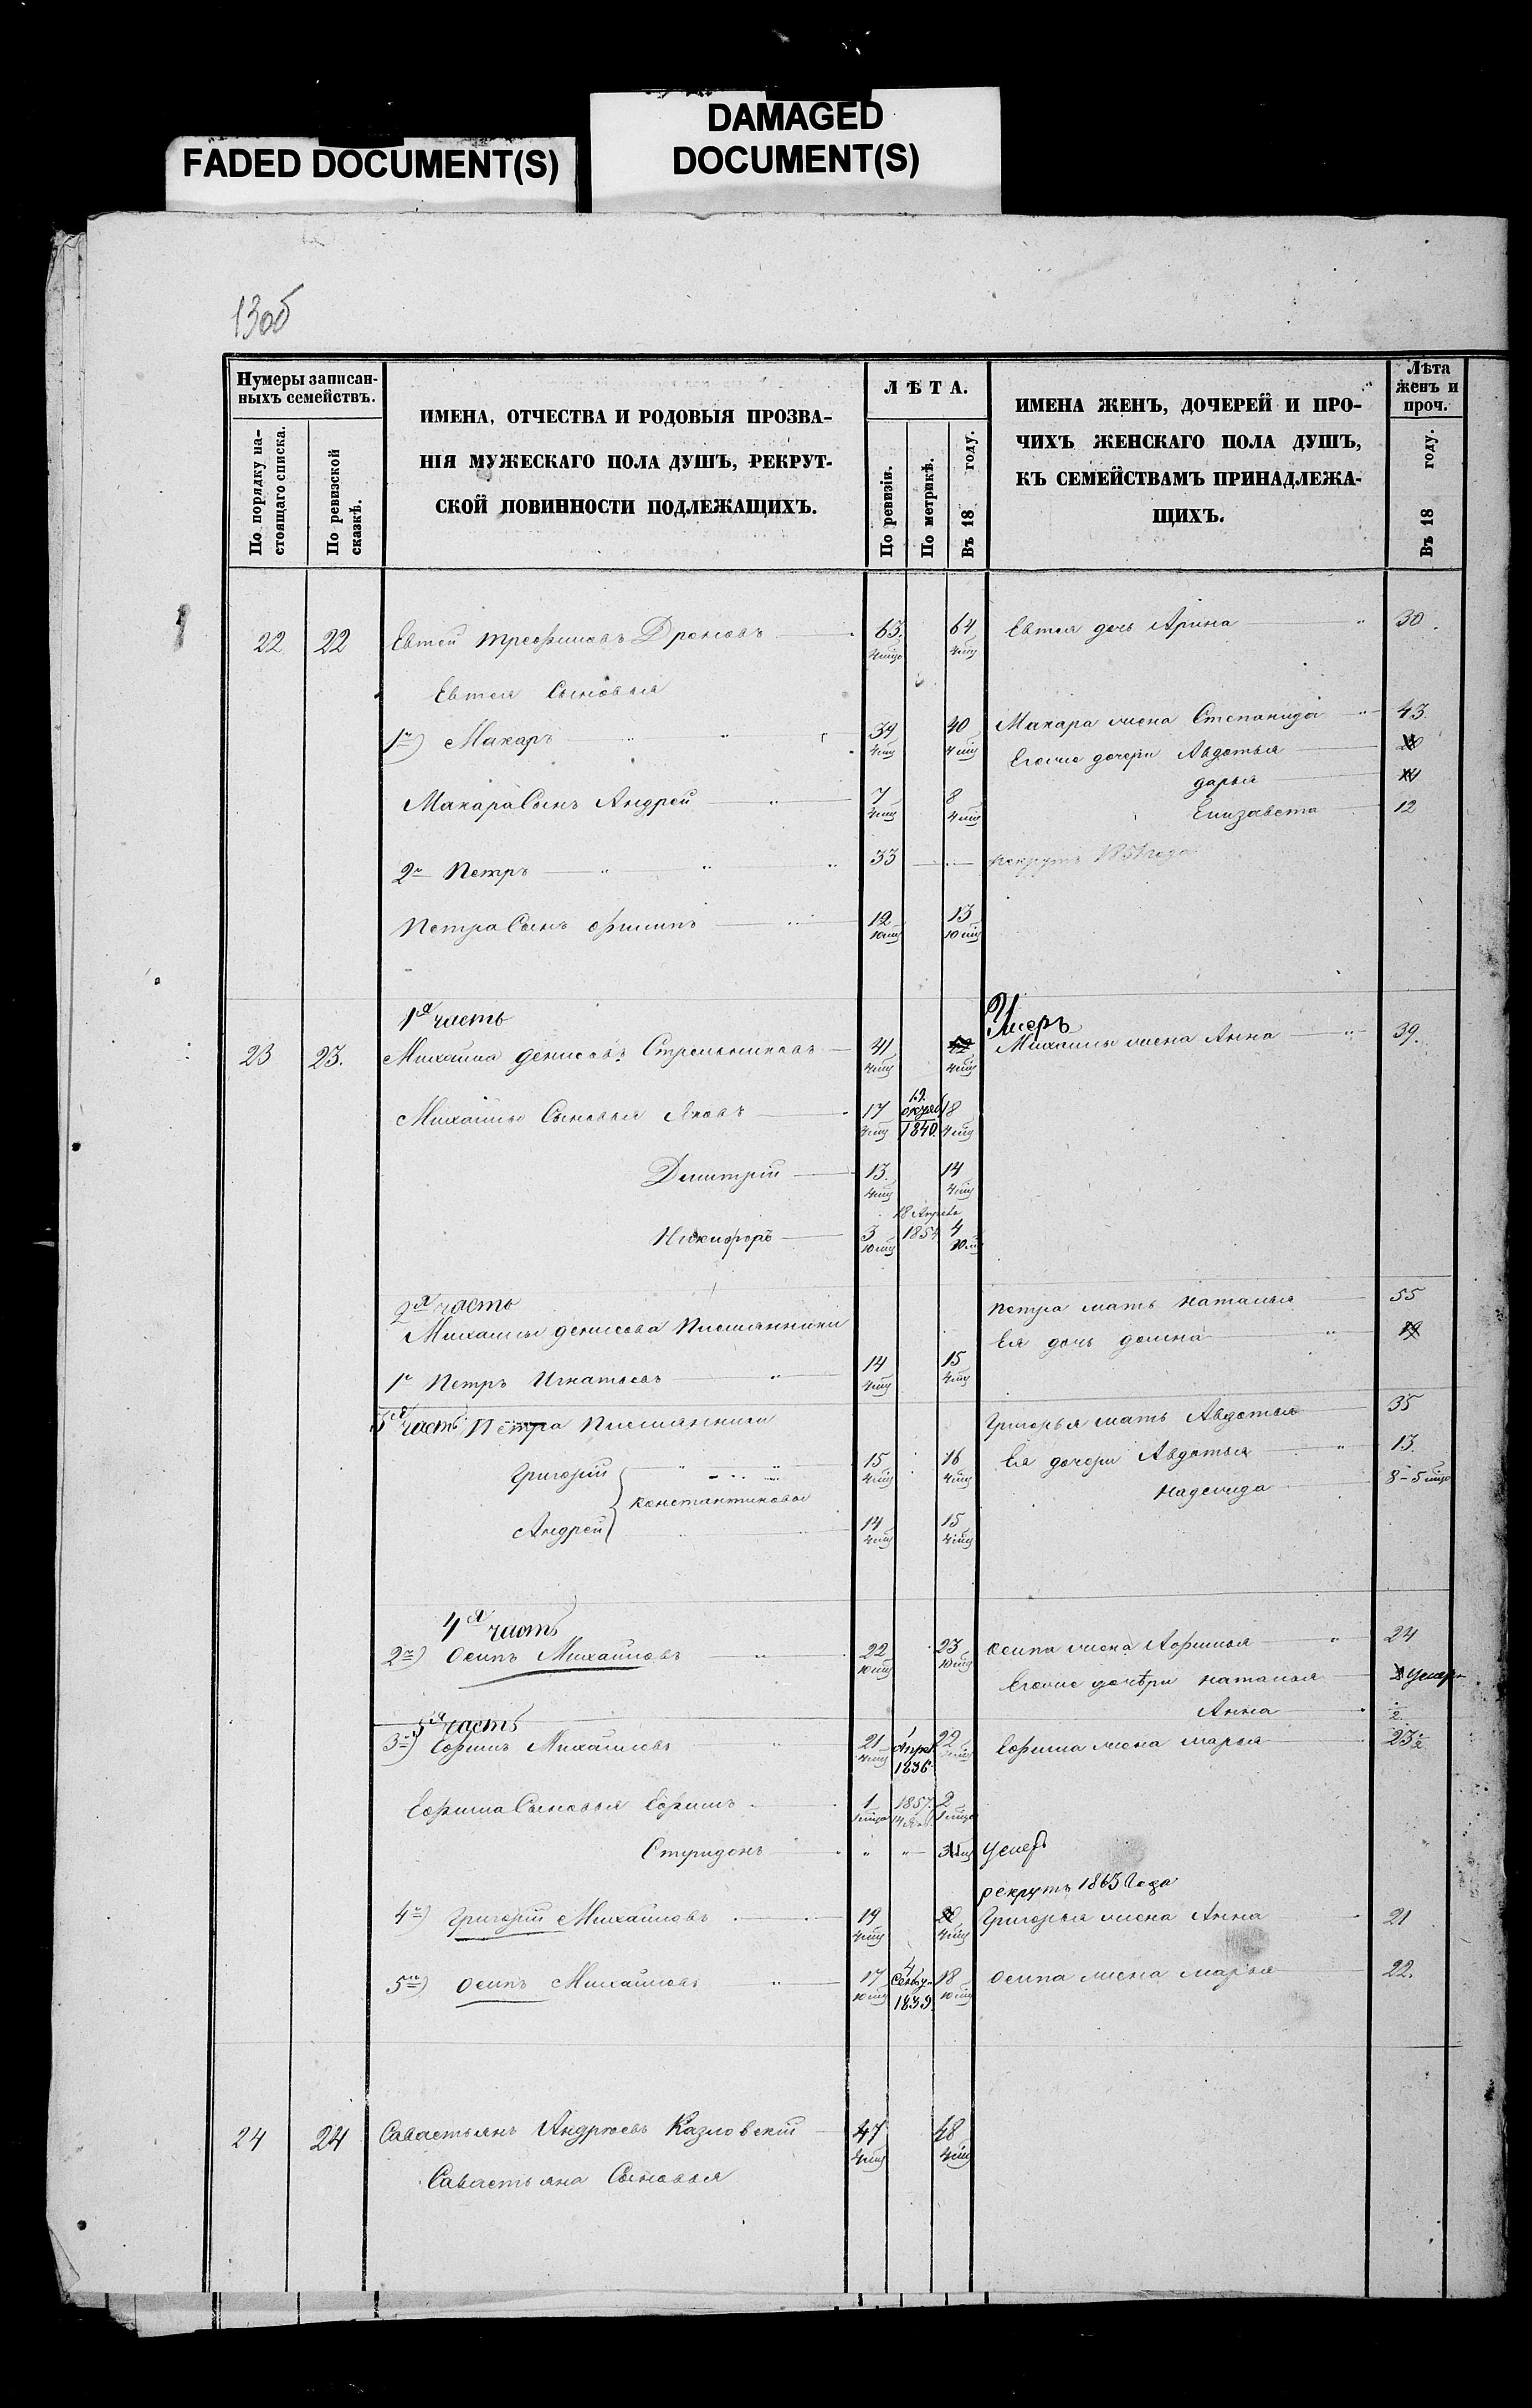 FADED DOCUMENT(S)
DAMAGED
DOCUMENT(S)
13об
Нумеры записан-
ныхъ семействъ.
По порядку на-
стоящаго списка.
По ревизской
сказкѣ.
ИМЕНА, ОТЧЕСТВА И РОДОВЫЯ ПРОЗВА-
НІЯ МУЖЕСКАГО ПОЛА ДУШЪ, РЕКРУТ-
СКОЙ ПОВИННОСТИ ПОДЛЕЖАЩИХЪ.
ЛѢТА.
По ревизіи.
По метрикѣ.
Въ 18 году.
ИМЕНА ЖЕНЪ, ДОЧЕРЕЙ И ПРО-
ЧИХЪ ЖЕНСКАГО ПОЛА ДУШЪ,
КЪ СЕМЕЙСТВАМЪ ПРИНАДЛЕЖА-
ЩИХЪ.
Лѣта
женъ и
проч.
Въ 18 году.
22 22 Евтей Трофимовъ Дроновъ 63 64 Евтея дочь Арина 30
Евтея Сыновья
1й) Макаръ 39 40 Макара жена Степанида 43
Егоже дочери Авдотья
дарья
Макара Сынъ Андрей 7 8 Елизавета 12
2й Петръ 33 рекрутъ 1857 года
Петра Сынъ Филипъ 12 13
1я часть Умеръ
23 23. Михаила денисовъ Стрельниковъ 41 Михаилы жена Анна 39.
Михаилы Сыновья Яковъ 17 12 октяб 1840 18
Дмитрій 13. 14
Никифоръ 3 18 Апреля 1854 4
2я часть Петра мать Наталья 55
Михаилы денисова Племянники Ея дочь домна
1й Петръ Игнатьевъ 14 15
часть Петра Племянники Григорья мать Авдотья 35
Григорій 15 16 Ея дочери Авдотья 13.
Константиновы Надежда 8-5
Андрей 14 15
4я часть
2й) Осипъ Михайловъ 22 23 Осипа жена Афимья 24
Егоже дочери Наталья умерла
Анна
5я часть
3й) Ефимъ Михайловъ 21 1 Апрел 1836 22 Ефима жена Марья 23
Ефима Сыновья Ефимъ 1 1857 14 Янв. 2
Спиридонъ умеръ
рекрутъ 1863 Года
4й) Григорій Михайловъ 19 Григорья жена Анна 21
5й) Осипъ Михайловъ 17 4 1839 18 Осипа жена Марья 22.
24 24 Савастьянъ Андреевъ Казловскій 47 48
Савастьяна Сыновья